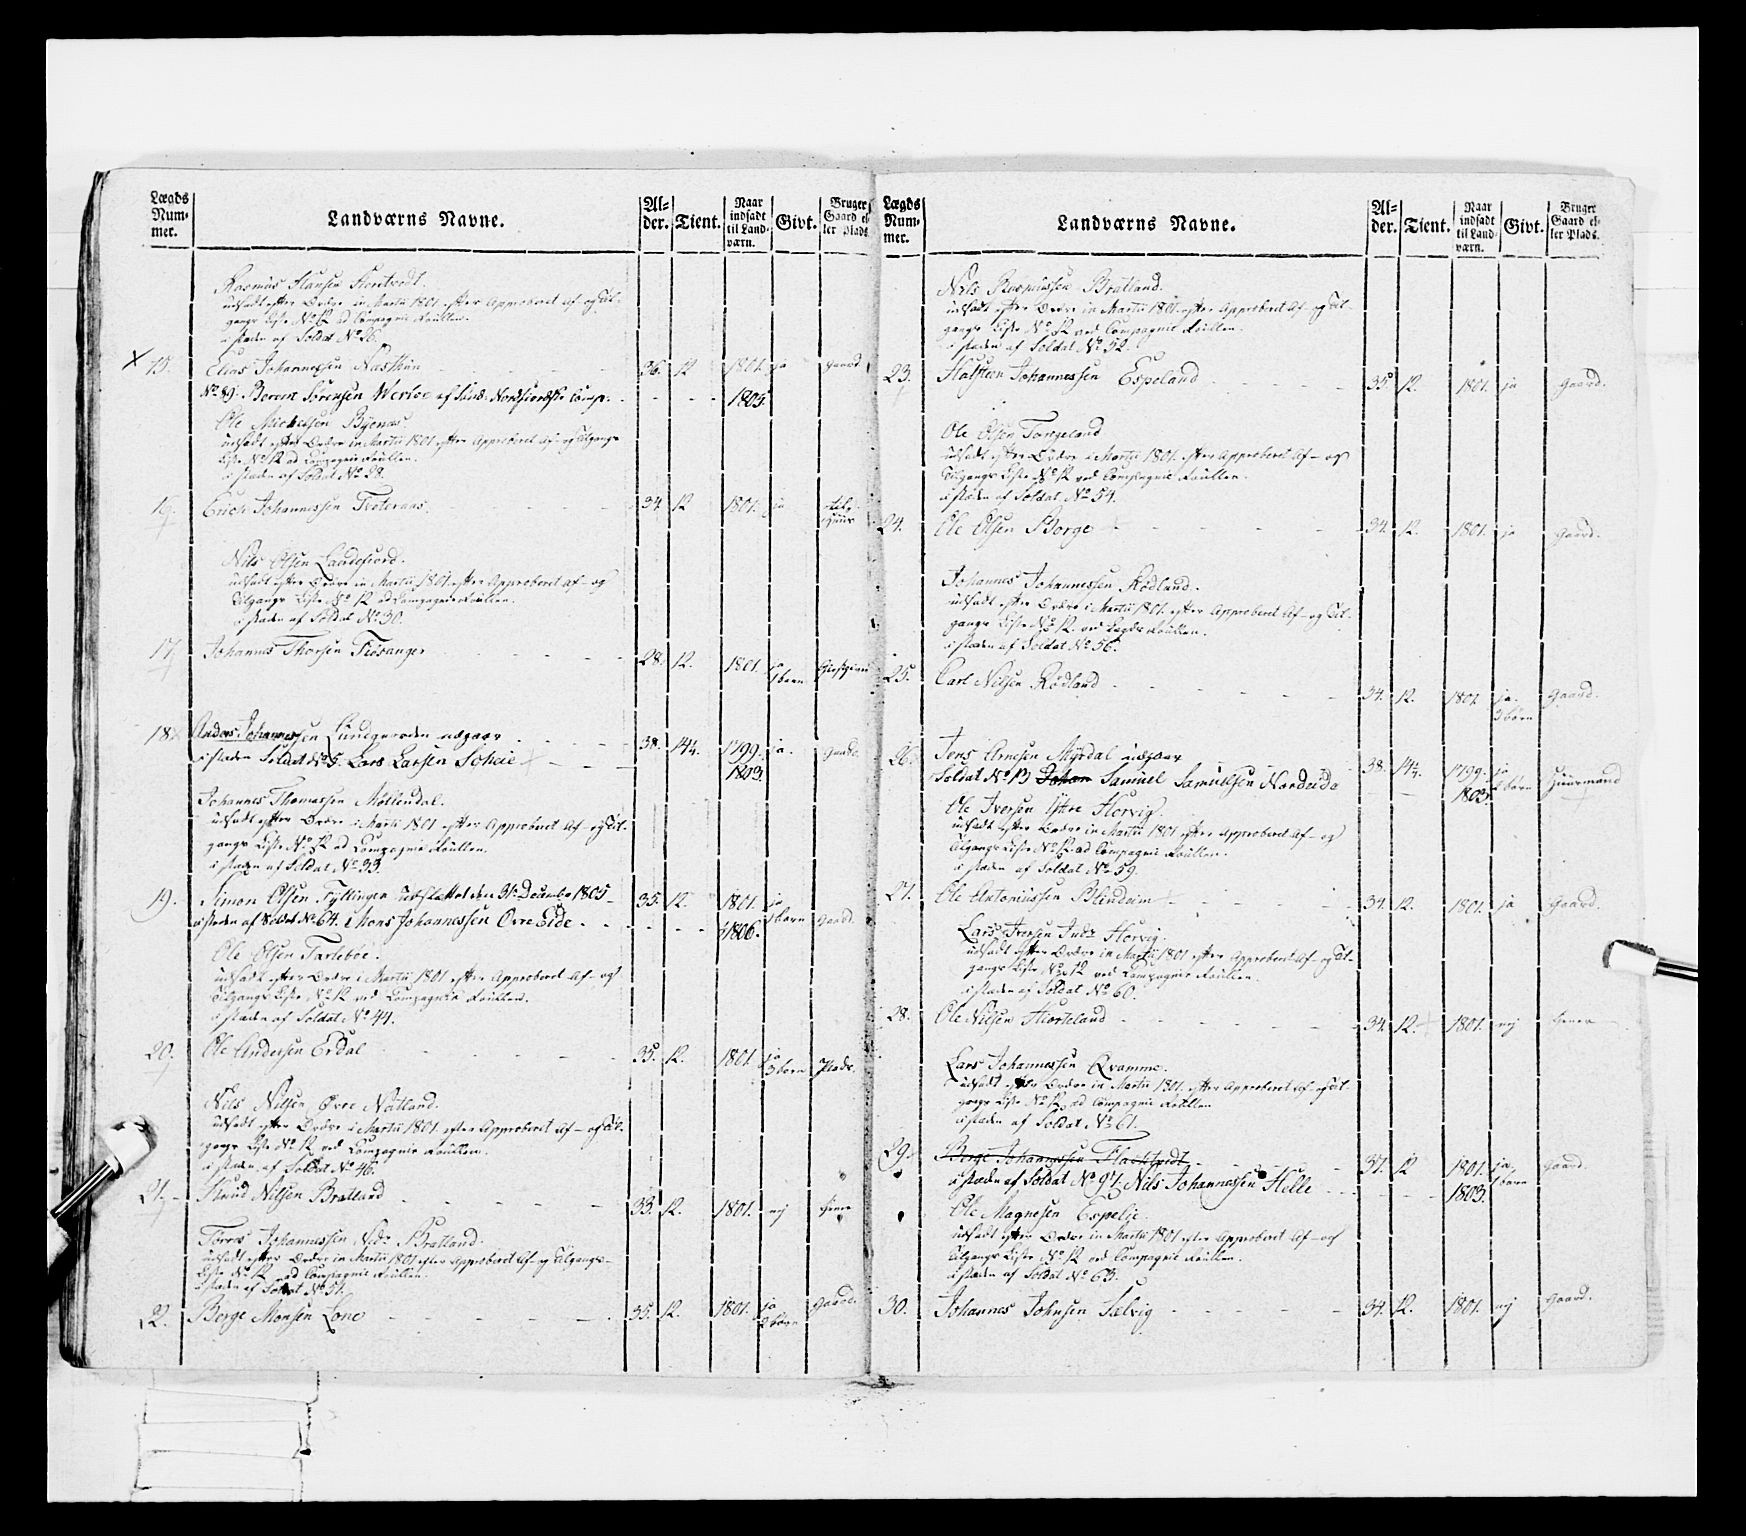 Lægds Nummer. Landværns Navne. Alder. Tient. Naar indsadt til Landværn. Givt. Bruger Gaard eller Plads.
Rasmus Hansen
udsadt efter Ordre in Martii 1801 efter Approberet Af- og Til-
gangs Liste No 12 ad Compagnie Roullen.
i stæden af Soldat No 26.
15. Elias Johannessen Næsthun 36. 12 1801. ja gaard
No 29. Berent Sørensen Werløe af Lands. Nordfiordske Comp. 1803.
Ole Michelsen Byenæs
udsadt efter Ordre in Martii 1801 efter Approberet Af- og Tilgangs
Liste No 12 ad Compagnie Roullen.
i stæden af Soldat No 28.
16. Erich Johannessen Troteraas. 34 12 1801. ja
Nils Olsen Lardefiord.
udsadt efter Ordre in Martii 1801 efter Approberet Af- og
Tilgangs Liste No 12 ad Compagnie Roullen.
i stæden af Soldat No 30.
17. Johannes Thorsen Fiøsanger 28. 12. 1801. 1 barn
18. Anders Johannessen Lundgaarden udgaar 38. 14¼. 1799. ja. gaard.
i stæden Soldat No 5. Lars Larsen Scheie 1803
Johannes Thomassen Møllendal.
udsadt efter Ordre i Martii 1801 efter Approberet Af- og Til-
gangs Liste No 12 ad Compagnie Roullen.
i stæden af Soldat No 33.
19. Simon Olsen Fyllingen udsluttet den 31 Decembr 1805 35. 12. 1801. ja
i stæden af Soldat No 64. Mons Johannessen Øvre Eide 1806. barn gaard.
Ole Olsen Tarlebøe.
udsadt efter Ordre i Martii 1801 efter Approberet Af- og
Tilgangs Liste No 12 ved Compagnie Roullen.
i stæden af Soldat No 44.
20. Ole Andersen Erdal 35. 12. 1801. ja 3 børn Plads.
Nils Nilsen Øvre Natland.
udsadt efter Ordre i Martii 1801. efter Approberet Af- og Til-
gangs Liste No 12 ved Compagnie Roullen.
i stæden af Soldat No 46.
21. Knud Nilsen Bratland 33. 12. 1801. nej
Torres Johannessen Nedr Bratland.
udsadt efter Ordre in Martii 1801 efter Approberet Af- og Tilgangs-
Liste No 12 ad Compagnie Roullen.
i stæden af Soldat No 51.
22. Berge Monsen Lone 35. 12. 1801. ja 2 børn gaard.
Lægds Nummer. Landværns Navne. Alder. Tient. Naar indsadt til Landværn. Givt. Bruger Gaard eller Plads.
Nils Rasmussen Bratland.
udsadt efter Ordre in Martii 1801 efter Approberet Af- og Til-
gangs Liste No 12 ved Compagnie Roullen.
i stæden af Soldat No 52.
23. Halsteen Johannessen Espeland 35 12. 1801. ja gaard.
Ole Olsen Tongeland
udsadt efter Ordre i Martii 1801. efter Approberet Af- og
Tilgangs Liste No 12 ved Compagnie Roullen.
i stæden af Soldat No 54.
24. Ole Olsen Borge 34. 12. 1801. ja gaard.
Johannes Johannessen Rødland.
udsadt efter Ordre i Martii 1801. efter Approberet Af- og Til-
gangs Liste No 12. ved Roullen.
i stæden af Soldat No 56.
25. Carl Nilsen Rødland 34. 12. 1801 ja. 3 børn gaard.
26. Jens Arnesen Myrdal udgaar 38. 14¼. 1799. ja
Soldat No 13 Johan Samuel Samuelsen Nordeide 1803. barn Huusmand
Ole Iversen Yttre Horvig.
udsadt efter Ordre in Martii 1801 efter Approberet Af- og
Tilgangs Liste No 12 ad Compagnie Roullen.
i stæden af Soldat No 59.
27. Ole Antoniussen Blindeim 34. 12. 1801. ja gaard.
Lars Iversen Indr Horvig.
udsadt efter Ordre in Martii 1801 efter Approberet Af- og Til-
gangs Liste No 12 ved Compagnie Roullen.
i stæden af Soldat No 60.
28. Ole Nilsen Hiorteland 34. 12. 1801. nej
Lars Johannessen Qvamme.
udsadt efter Ordre in Martii 1801. efter Approberet Af- og Til-
gangs Liste No 12 ad Compagnie Roullen
i stæden af Soldat No 61.
29. Berge Johannessen 37. 12 1801. ja, gaard.
i stæden af Soldat No 97. Nils Johannessen Helle 1803. barn
Ole Magnesen Espelie.
udsadt efter Ordre in Martii 1801 efter Approberet Af- og
Tilgangs Liste No 12 ved Compagnie Roullen.
i stæden af Soldat No 63.
30. Johannes Johnsen Sælvig 34. 12. 1801. nej gaard.